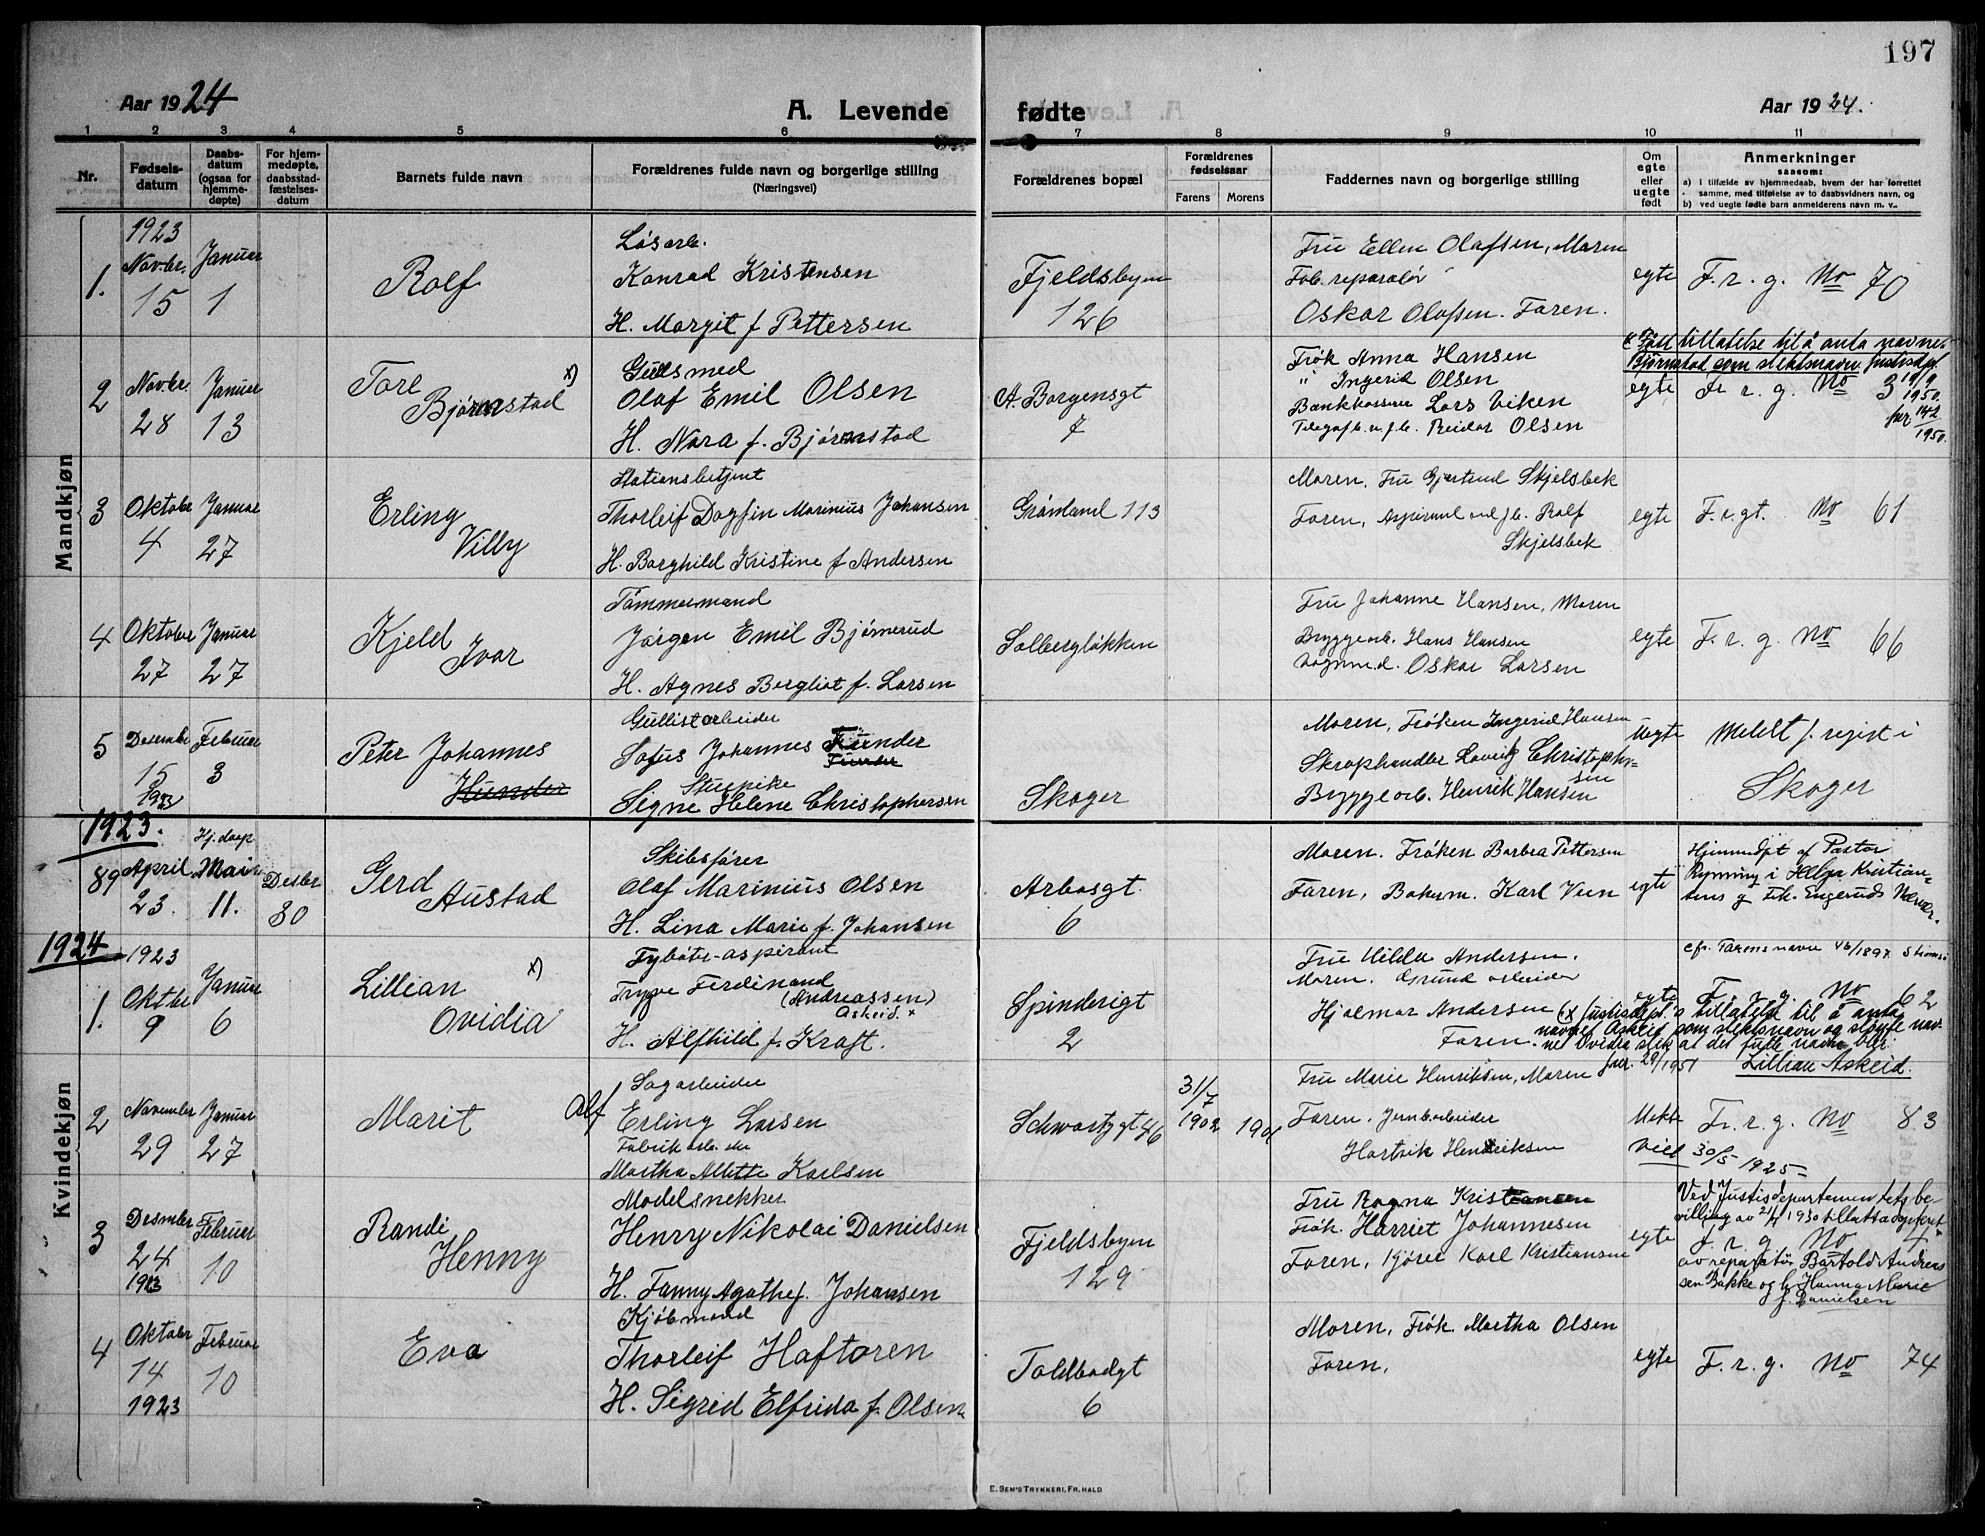 197
Aar 1924
A. Levende
fødte
Aar 1924.
1 2 3 4 5 6 7 8 9 10 11
Nr.
Fødsels-
datum
Daabs-
datum
(ogsaa for
hjemme-
døpte)
For hjem-
medøpte,
daabsstad-
fæstelses-
datum
Barnets fulde navn
Forældrenes fulde navn og borgerlige stilling
(Næringsvei)
Forældrenes bopæl
Forældrenes
fødselsaar
Farens Morens
Faddernes navn og borgerlige stilling
Om
egte
eller
uegte
født
Anmerkninger
saasom:
a) I tilfælde av hjemmedaab, hvem der har forrettet
samme, med tilføielse av to daabsvidners navn, og
b) ved uegte fødte barn anmelderens navn m. v.
Mandkjøn
1923
1. Novbr. 15
Januar 1
Rolf
Løsarb.
Konrad Kristensen
H. Margit f Pettersen
Fjeldsbyen
126
Fru Ellen Olafsen, Moren
Fab. reparatør
Oskar Olafsen. Faren.
egte
F. r. g. No 70
2 Novbr. 28
Januar 13
Tore x)
Bjørnstad
Gullsmed
Olaf Emil Olsen
H. Nora f. Bjørnstad
A. Borgensgt
7
Frøk Anna Hansen
" Ingerid Olsen
Bankkasserer Lars Viken
Reidar Olsen
egte
Fått tillatelse til å anta navnet
Bjørnstad som slektsnavn. Justisdpt.
19/9 1950.
F. r. g. No 3
142/1950.
3 Oktober 4
Januar 27
Erling
Villy
Stationsbetjent
Thorleif Dagfin Marinius Johansen
H. Borghild Kristine f Andersen
Grønland 113
Moren, Fru Gjertrud Skjelsbek
Faren, Aspirant ved jb. Rolf
Skjelsbek
egte
F. r. gt. No 61
4 Oktober 27
Januar 27
Kjeld
Ivar
Tømmermand
Jørgen Emil Bjørnerud
H. Agnes Bergliot f. Larsen
Solbergløkken
Fru Johanne Hansen, Moren
Bryggearb. Hans Hansen
Vognmd. Oskar Larsen
egte
F. r. g. No 66
5 Desember 15 1923
Februar 3
Peter Johannes
Hunder
Gullistarbeider
Sofus Johannes Funder
Funder
Stuepike
Signe Helene Christophersen
Skoger
Moren, Frøken Ingerid Hansen
Skraphandler Lauritz Christopher-
sen
Bryggearb. Henrik Hansen
uegte
Meldt f. regist i
Skoger
Kvindekjøn
1923.
89 April 23.
Hj. daap
Mai 11.
Desbr 30
Gerd
Austad
Skibsfører
Olaf Marinius Olsen
H. Lina Marie f. Johansen
Arbosgt.
6
Moren. Frøken Barbra Pettersen
Faren, Bokum. Karl Veen
egte
Hjemmedøpt af Pastor
Rynning i Helga Kristian-
sens g Frk. Engeruds Nærvær.
1924
1923
1. Oktbr 9
Januar 6
Lillian x)
Ovidia
Fyrbøter-aspirant
Trygve Ferdinand
(Andreassen)
Askeid. x
H. Alfhild f. Kraft.
Spinderigt
2
Fru Hilda Andersen.
Moren. Grund arbeider
Hjalmar Andersen
Faren.
egte
cfr. Farens navn 46/1897 Strømsø
F. r. g. No 62
(x Justisdept.s tillatelse til å anta
navnet Askeid som slektsnavn og sløyfe nav-
net Ovidia slik at det fulle navn blir:
Lillian Askeid.
jnr. 29/1951
2 November 29
Januar 27
Marit
Sagarbeider
Alf Erling Larsen
Fabrikarb.ske
Martha Alette Karlsen
Schwartzgt 46
31/7
1902 1901
Fru Marie Henriksen, Moren
Faren, Jernbarbeider
Hartvik Henriksen
Uekte
viet 30/5 1925
F. r. g. No 83
3 Desmber 24 1923
Februar 10
Randi
Henny
Modelsnekker
Henry Nikolai Danielsen
H. Fanny Agathe f. Johansen
Fjeldsbyen
129
Fru Ragna Kristiansen
Frøk. Harriet Johannesen
Faren, Kjører Karl Kristiansen
egte
Ved Justisdepartementets be-
villing av 21/1 1930 tillatt adoptert
f. r. g No 4
av reparatør Bartold Andreas-
sen Bakke og h. Hanna Marie
f. Danielsen
4 Oktober 14 1923
Februar 10
Eva
Kjøbmand
Thorleif Haftoren
H. Sigrid Elfrida f. Olsen
Toldbodgt
6
Moren, Frøk Martha Olsen
Faren,
egte
F. r. g. No 74
E. SEM'S TRYKKERI, FR. HALD